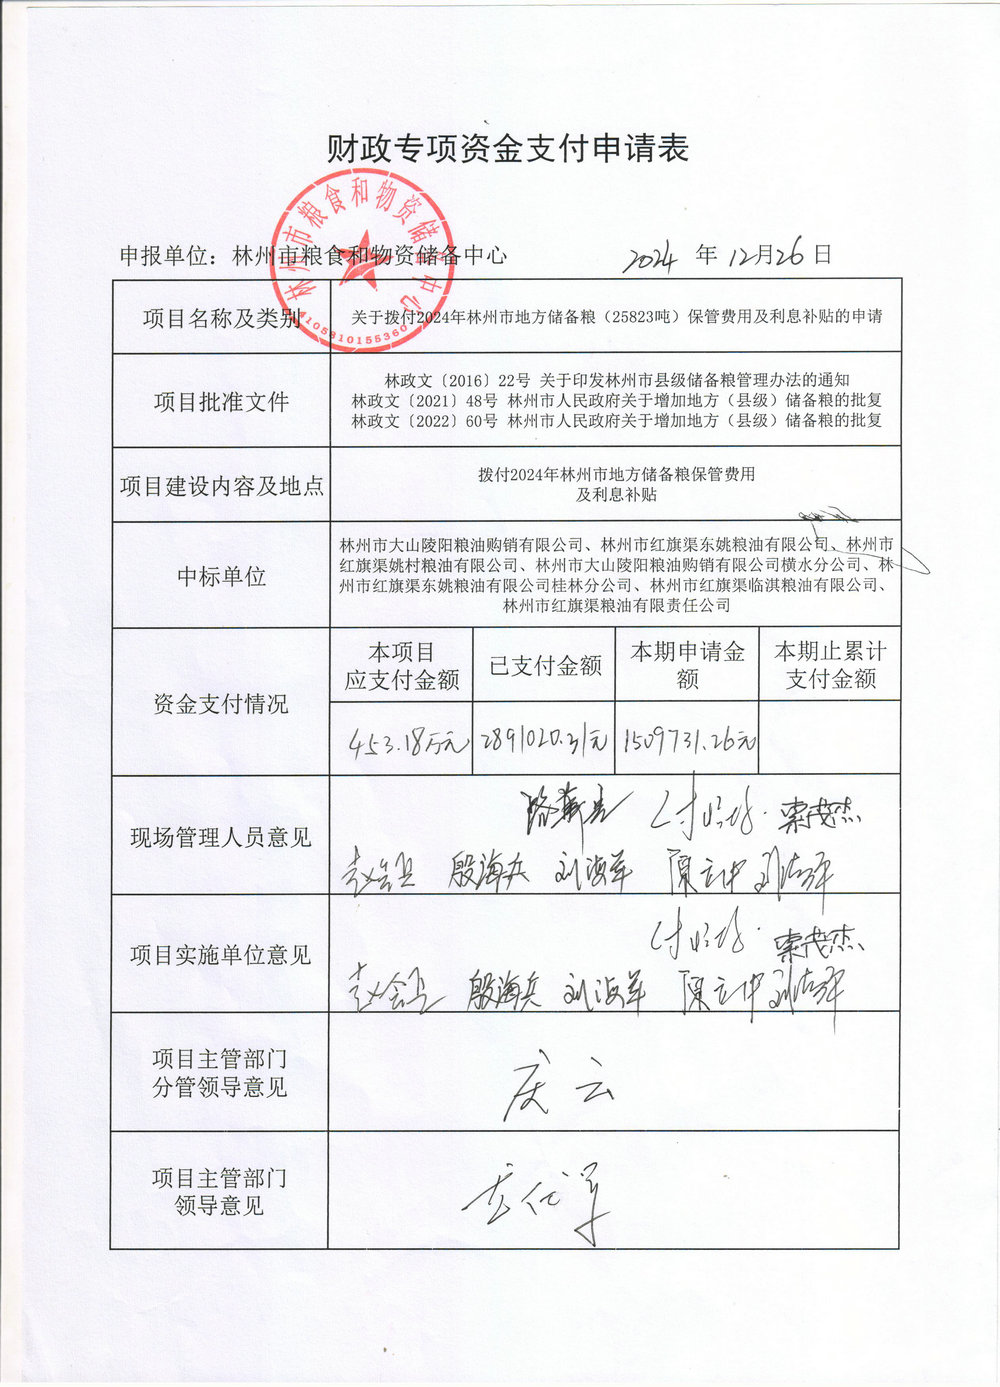 财政专项资金支付申请表
林州市粮食和物资储备中心
4105810155360
申报单位：林州市粮食和物资储备中心 2024 年 12月26日
项目名称及类别 关于拨付2024年林州市地方储备粮（25823吨）保管费用及利息补贴的申请
项目批准文件
林政文〔2016〕22号 关于印发林州市县级储备粮管理办法的通知
林政文〔2021〕48号 林州市人民政府关于增加地方（县级）储备粮的批复
林政文〔2022〕60号 林州市人民政府关于增加地方（县级）储备粮的批复
项目建设内容及地点
拨付2024年林州市地方储备粮保管费用
及利息补贴
中标单位
林州市大山陵阳粮油购销有限公司、林州市红旗渠东姚粮油有限公司、林州市
红旗渠姚村粮油有限公司、林州市大山陵阳粮油购销有限公司横水分公司、林
州市红旗渠东姚粮油有限公司桂林分公司、林州市红旗渠临淇粮油有限公司、
林州市红旗渠粮油有限责任公司
资金支付情况
本项目
应支付金额
已支付金额
本期申请金
额
本期止累计
支付金额
453.18万元 2891020.31元 1509731.26元
现场管理人员意见
索茂杰
殷海兵 刘海军 陈立中
项目实施单位意见
索茂杰
殷海兵 刘海军 陈立中
项目主管部门
分管领导意见
庆云
项目主管部门
领导意见